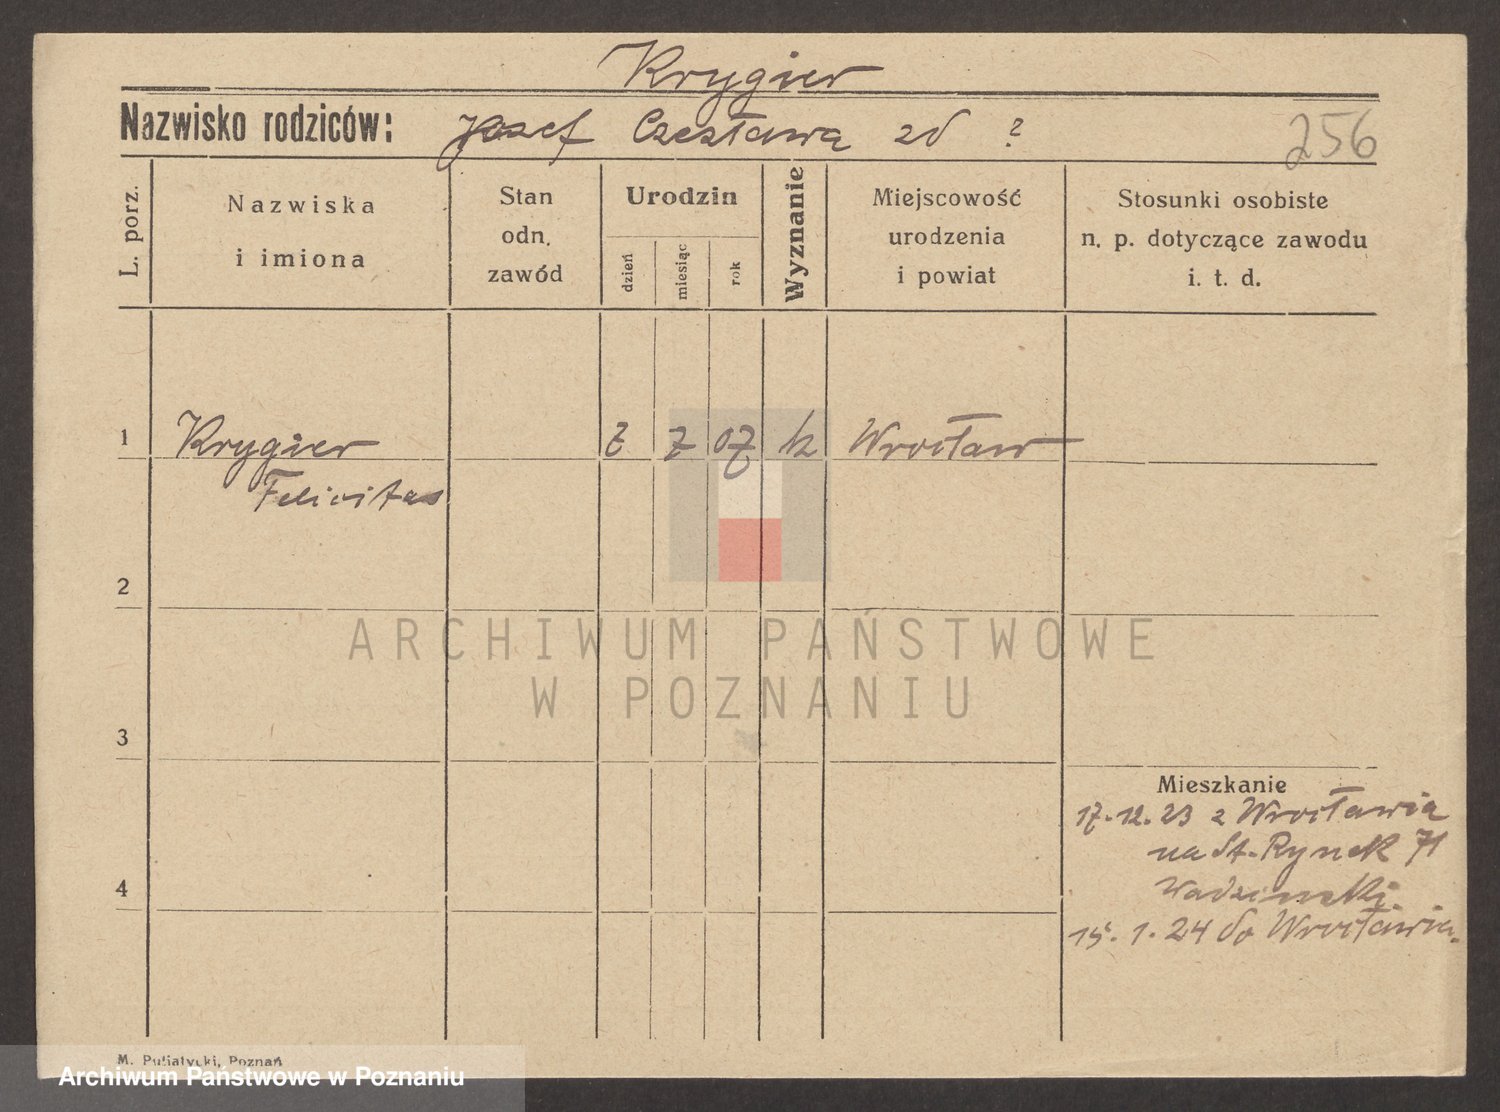 Krygier
Nazwisko rodziców: Józef Czesława zd ?
256
L. porz.
Nazwiska
i imiona
Stan
odn.
zawód
Urodzin
dzień
miesiąc
rok
Wyznanie
Miejscowość
urodzenia
i powiat
Stosunki osobiste
n. p. dotyczące zawodu
i. t. d.
1
Krygier
Felicitas
7 07 k Wrocław
2
3
4
Mieszkanie
17.12.23 z Wrocławia
na St. Rynek 71
15.1.24 do Wrocławia.
M. Putiatycki, Poznań
ARCHIWUM PAŃSTWOWE
W POZNANIU
Archiwum Państwowe w Poznaniu